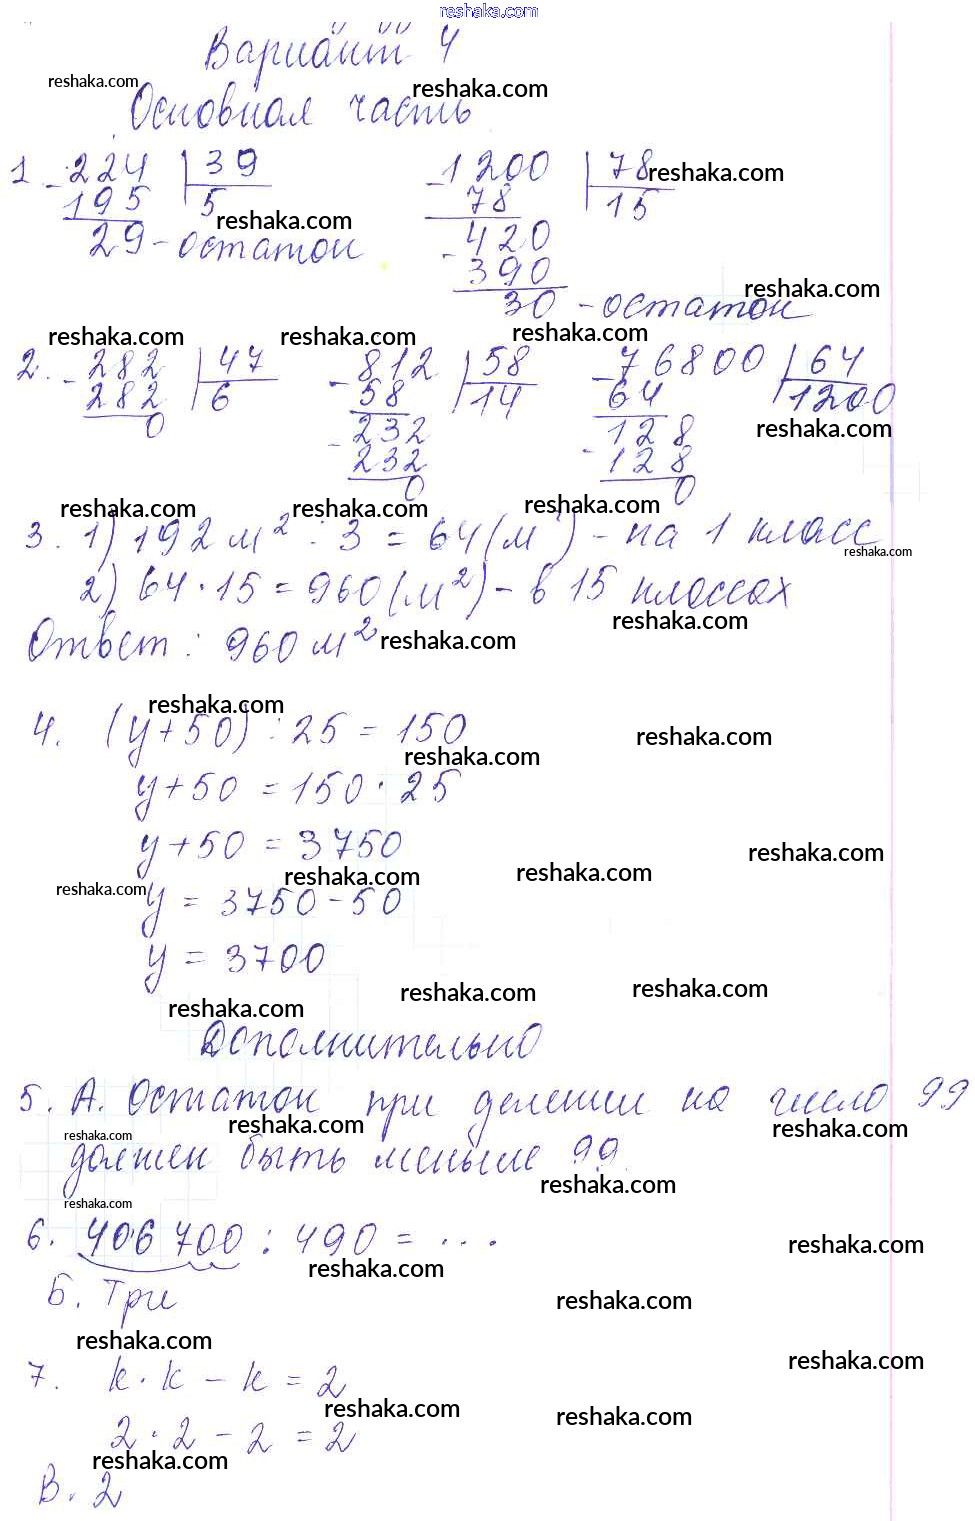 reshaka.com
Вариант 4
reshaka.com reshaka.com
Основная часть
1. - 224 | 39 - 1200 | 78 reshaka.com
195 5 78 15
reshaka.com
29 - остаток - 420
390
reshaka.com
30 - остаток
reshaka.com reshaka.com reshaka.com
2. - 282 | 47 - 812 | 58 - 76800 | 64
282 6 58 14 64 1200
0 - 232 128 reshaka.com
232 - 128
0 0
reshaka.com reshaka.com reshaka.com
3. 1) 192 м² : 3 = 64 (м²) - на 1 класс
reshaka.com
2) 64 · 15 = 960 (м²) - в 15 классах
reshaka.com
Ответ: 960 м² reshaka.com
reshaka.com
4. (y + 50) : 25 = 150 reshaka.com
reshaka.com
y + 50 = 150 · 25
y + 50 = 3750 reshaka.com
reshaka.com reshaka.com reshaka.com
y = 3750 - 50
y = 3700
reshaka.com reshaka.com reshaka.com
Дополнительно
5. А. Остаток при делении на число 99
reshaka.com reshaka.com reshaka.com
должен быть меньше 99.
reshaka.com reshaka.com
6. 406 700 : 490 = ... reshaka.com
reshaka.com
Б. Три reshaka.com
reshaka.com
7. k · k - k = 2 reshaka.com
reshaka.com reshaka.com
2 · 2 - 2 = 2
reshaka.com
В. 2